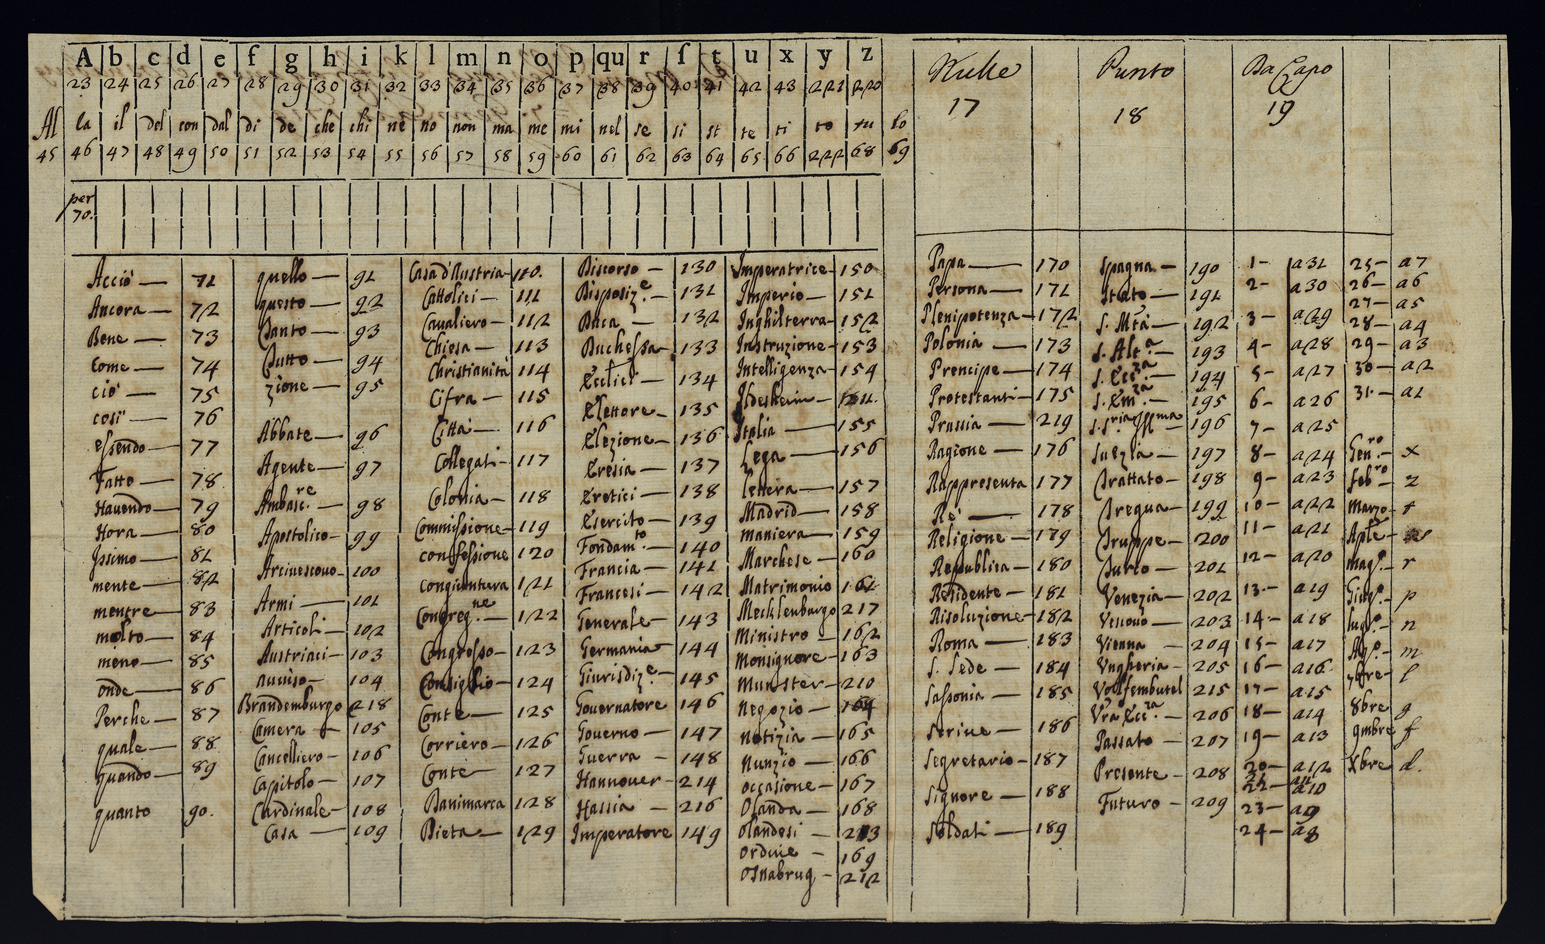 A b c d e f g h i k l m n o p qu r ſ t u x y z
23 24 25 26 27 28 29 30 31 32 33 34 35 36 37 38 39 40 41 42 43 221 220
Al la il del con dal di de che chi ne no non ma me mi nel se si st te ti to tu lo
45 46 47 48 49 50 51 52 53 54 55 56 57 58 59 60 61 62 63 64 65 66 222 68 69
per
70.
Nulle Punto Da Capo
17 18 19
Acciò 71
Ancora 72
Bene 73
Come 74
ciò 75
così 76
essendo 77
Fatto 78
Havendo 79
Hora 80
Issimo 81
mente 82
mentre 83
molto 84
meno 85
onde 86
Perche 87
quale 88
quando 89
quanto 90.
quello 91
questo 92
Tanto 93
Tutto 94
zione 95
Abbate 96
Agente 97
Ambasc.re 98
Apostolico 99
Arcivescovo 100
Armi 101
Articoli 102
Austriaci 103
avviso 104
Brandemburgo 218
Camera 105
Cancelliero 106
Capitolo 107
Cardinale 108
Casa 109
Casa d'Austria 110.
Cattolici 111
Cavaliero 112
Chiesa 113
Christianità 114
Cifra 115
Città 116
Collegati 117
Colonia 118
Commissione 119
confessione 120
Congiuntura 121
Congreg.ne 122
Congresso 123
Consiglio 124
Conte 125
Corriero 126
Corte 127
Danimarca 128
Dieta 129
Discorso 130
Disposiz.e 131
Duca 132
Duchessa 133
Eccl.ici 134
Elettore 135
Elezione 136
Eresia 137
Eretici 138
Esercito 139
Fondam.to 140
Francia 141
Francesi 142
Generale 143
Germania 144
Giurisdiz.e 145
Governatore 146
Governo 147
Guerra 148
Hannover 214
Hassia 216
Imperatore 149
Imperatrice 150
Imperio 151
Inghilterra 152
Instruzione 153
Intelligenza 154
Ildesheim
Italia 155
Lega 156
Lettera 157
Madrid 158
maniera 159
Marchese 160
Matrimonio 161
Mecklenburgo 217
Ministro 162
Monsignore 163
Munster 210
Negozio 164
Notizia 165
Nunzio 166
occasione 167
Olanda 168
Olandesi 213
Ordine 169
Osnabrug 212
Papa 170
Persona 171
Plenipotenza 172
Polonia 173
Prencipe 174
Protestanti 175
Prussia 219
Ragione 176
Rappresenta 177
Rè 178
Religione 179
Republica 180
Residente 181
Risoluzione 182
Roma 183
S. Sede 184
Sassonia 185
Scrive 186
Segretario 187
Signore 188
Soldati 189
Spagna 190
Stato 191
S. Mtà 192
S. Alt.a 193
S. Ecc.za 194
S. Em.za 195
S. S.ria Ill.ma 196
Suezia 197
Trattato 198
Tregua 199
Truppe 200
Turco 201
Venezia 202
Vescovo 203
Vienna 204
Ungheria 205
Volfembutel 215
Vra Ecc.za 206
Passato 207
Presente 208
Futuro 209
1 a31
2 a30
3 a29
4 a28
5 a27
6 a26
7 a25
8 a24
9 a23
10 a22
11 a21
12 a20
13 a19
14 a18
15 a17
16 a16
17 a15
18 a14
19 a13
20 a12
22 a10
23 a9
24 a8
25 a7
26 a6
27 a5
28 a4
29 a3
30 a2
31 a1
Gen.ro x
Feb.ro z
Marzo t
Aple
Mag.o r
Giug.o p
lug.o n
Ag.o m
7bre l
8bre g
9mbre f
Xbre d.